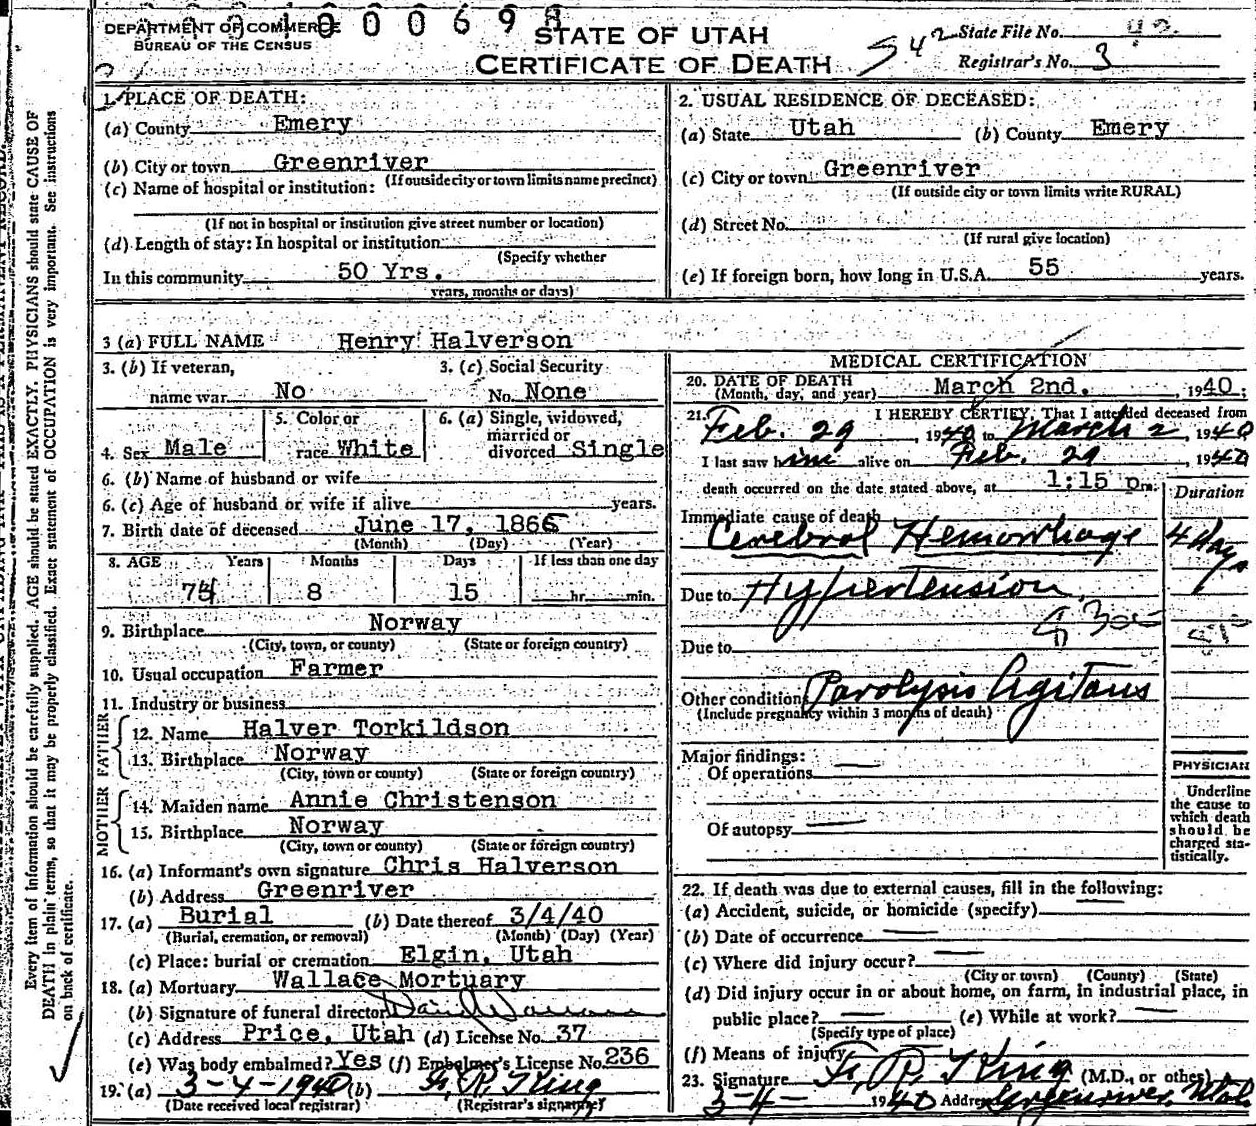 DEPARTMENT OF COMMERCE
BUREAU OF THE CENSUS
1000698
STATE OF UTAH
CERTIFICATE OF DEATH
542
State File No.
Registrar's No. 3
1. PLACE OF DEATH:
(a) County Emery
(b) City or town Greenriver
(If outside city or town limits name precinct)
(c) Name of hospital or institution:
(If not in hospital or institution give street number or location)
(d) Length of stay: In hospital or institution
(Specify whether
In this community 50 Yrs.
years, months or days)
2. USUAL RESIDENCE OF DECEASED:
(a) State Utah (b) County Emery
(c) City or town Greenriver
(If outside city or town limits write RURAL)
(d) Street No.
(If rural give location)
(e) If foreign born, how long in U.S.A. 55 years.
3 (a) FULL NAME Henry Halverson
3. (b) If veteran, name war No
3. (c) Social Security No. None
4. Sex Male
5. Color or race White
6. (a) Single, widowed, married or divorced Single
6. (b) Name of husband or wife
6. (c) Age of husband or wife if alive years.
7. Birth date of deceased June 17, 1866
(Month) (Day) (Year)
8. AGE Years Months Days If less than one day
74 8 15 hr. min.
9. Birthplace Norway
(City, town, or county) (State or foreign country)
10. Usual occupation Farmer
11. Industry or business
FATHER
12. Name Halver Torkildson
13. Birthplace Norway
(City, town or county) (State or foreign country)
MOTHER
14. Maiden name Annie Christenson
15. Birthplace Norway
(City, town or county) (State or foreign country)
16. (a) Informant's own signature Chris Halverson
(b) Address Greenriver
17. (a) Burial (b) Date thereof 3/4/40
(Burial, cremation, or removal) (Month) (Day) (Year)
(c) Place: burial or cremation Elgin, Utah
18. (a) Mortuary Wallace Mortuary
(b) Signature of funeral director
(c) Address Price, Utah (d) License No. 37
(e) Was body embalmed? Yes (f) Embalmer's License No. 236
19. (a) 3-4-1940 (b) F. R. King
(Date received local registrar) (Registrar's signature)
MEDICAL CERTIFICATION
20. DATE OF DEATH March 2nd. , 1940;
(Month, day, and year)
21. I HEREBY CERTIFY, That I attended deceased from
Feb. 29, 1940 to March 2, 1940
I last saw him alive on Feb. 29, 1940
death occurred on the date stated above, at 1:15 p.m.
Duration
Immediate cause of death
Cerebral Hemorrhage 4 days
Due to Hypertension
Due to
Other conditions Paralysis Agitans
(Include pregnancy within 3 months of death)
Major findings:
Of operations
Of autopsy
PHYSICIAN
Underline
the cause to
which death
should be
charged sta-
tistically.
22. If death was due to external causes, fill in the following:
(a) Accident, suicide, or homicide (specify)
(b) Date of occurrence
(c) Where did injury occur?
(City or town) (County) (State)
(d) Did injury occur in or about home, on farm, in industrial place, in
public place? (e) While at work?
(Specify type of place)
(f) Means of injury
23. Signature F. R. King (M.D., or other)
3-4- 1940 Address Greenriver, Utah
Every item of information should be carefully supplied. AGE should be stated EXACTLY. PHYSICIANS should state CAUSE OF
DEATH in plain terms, so that it may be properly classified. Exact statement of OCCUPATION is very important. See instructions
on back of certificate.